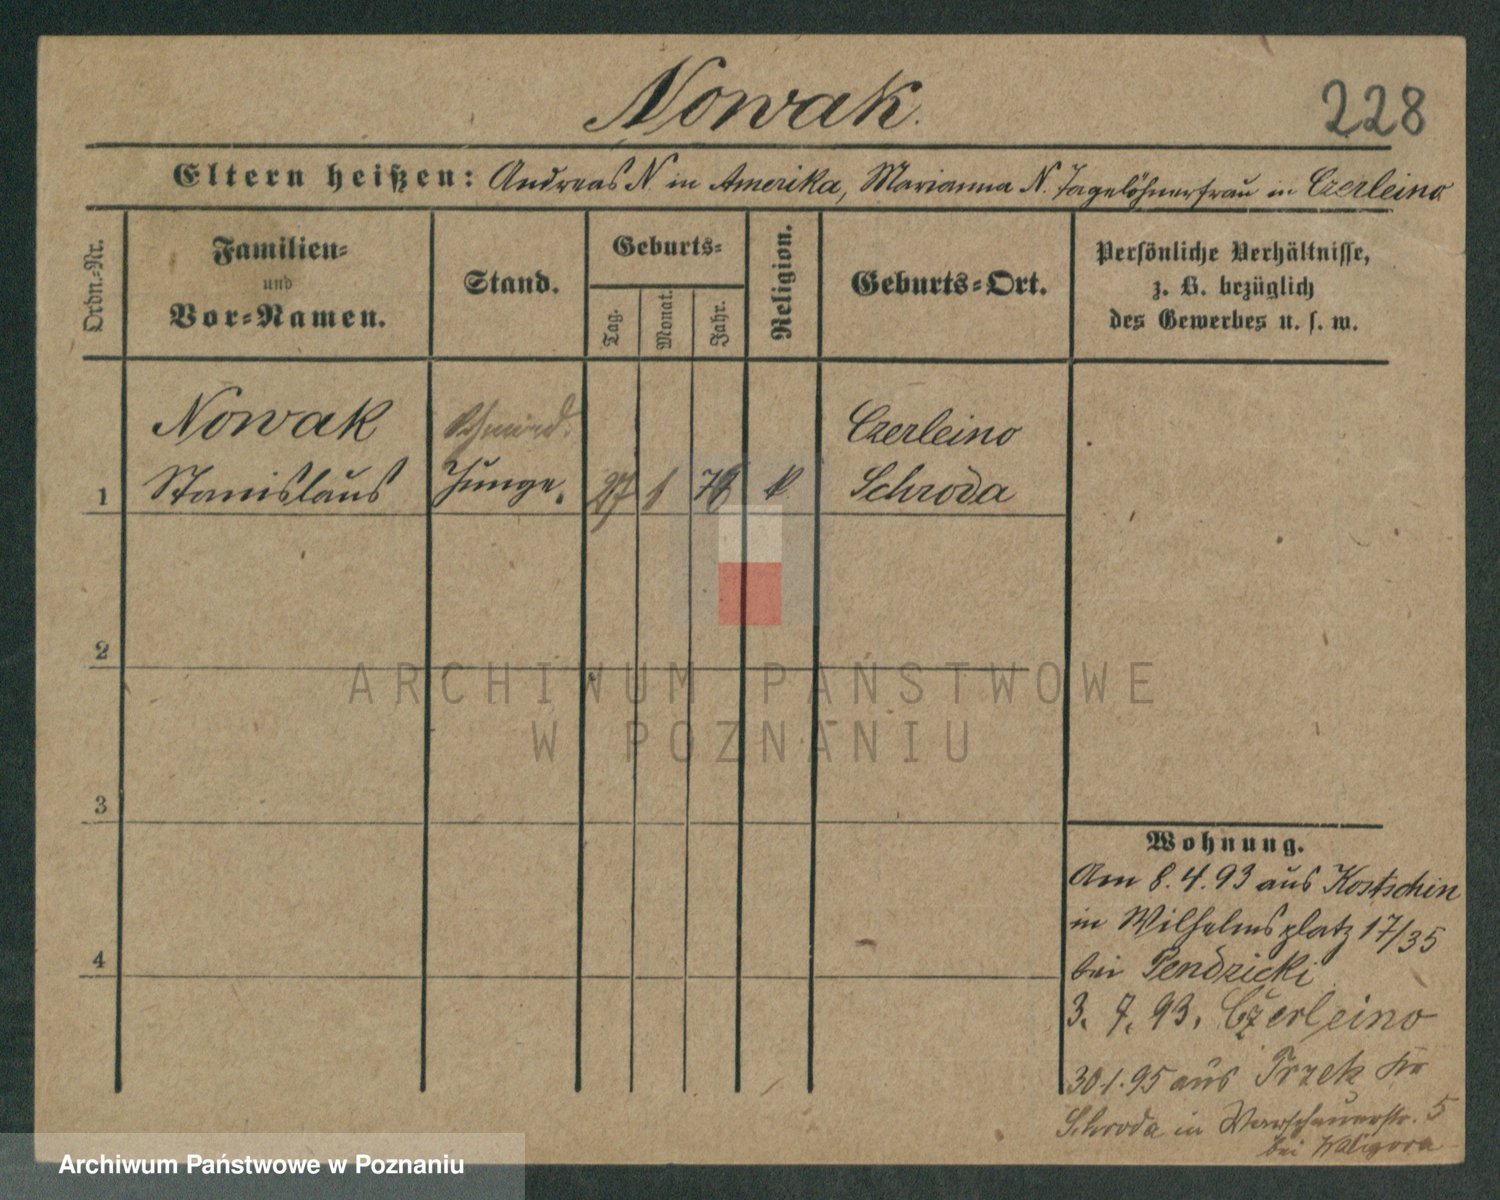 Nowak.
228
Eltern heißen: Andreas N in Amerika, Marianna N. Tagelöhnerfrau in Czerleino
Ordn.-Nr.
Familien-
und
Vor-Namen.
Stand.
Geburts-
Tag.
Monat.
Jahr.
Religion.
Geburts-Ort.
Persönliche Verhältnisse,
z. B. bezüglich
des Gewerbes u. s. w.
Nowak
Schmied.
Czerleino
1 Stanislaus Junge. 27 1 k. Schroda
2
3
4
ARCHIWUM PAŃSTWOWE
W POZNANIU
Wohnung.
Am 8.4.93 aus Kostschin
in Wilhelmsplatz 17/35
bei Pendzicki
3. 7. 93. Czerleino
30.1.95 aus
Schroda in Warschauerstr. 5
bei Waligora
Archiwum Państwowe w Poznaniu